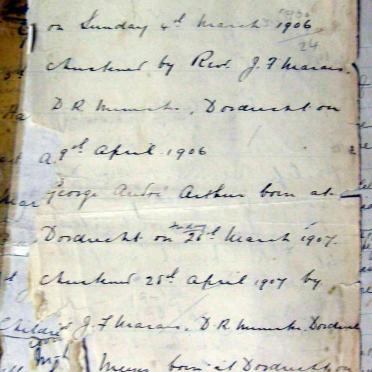 on Sunday 4th March 1906
24
christened by Revd J. F Marais.
D. R Minister, Dordrecht on
9th April 1906
George André Arthur born at
Dordrecht on 26th March 1907.
christened 28th April 1907 by
J. F Marais. D. R Minister Dordrecht
born at Dordrecht on